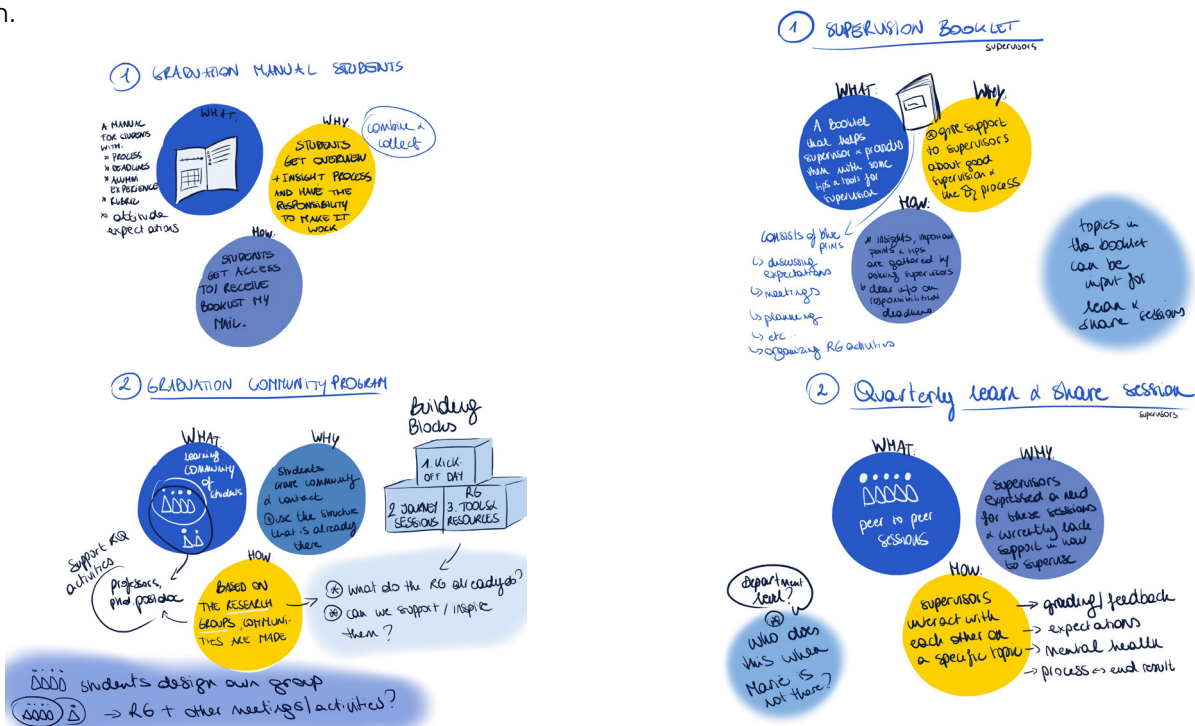 n.
1 GRADUATION MANUAL STUDENTS
WHAT:
A MANUAL
FOR STUDENTS
WITH:
* PROCESS
* DEADLINES
* ALUMNI
EXPERIENCE
* RUBRIC
* attitude
expectations
WHY:
STUDENTS
GET OVERVIEW
+ INSIGHT PROCESS
AND HAVE THE
RESPONSIBILITY
TO MAKE IT
WORK
combine &
collect
HOW:
STUDENTS
GET ACCESS
TO/ RECEIVE
BOOKLET
MAIL.
2 GRADUATION COMMUNITY PROGRAM
WHAT:
learning
community
of
students
WHY
students
crave community
& contact
use the structure
that is already
there
Building
Blocks
1. KICK-
OFF DAY
2 JOURNEY
SESSIONS
RG
3. TOOLS &
RESOURCES
Support RG
activities
professors,
phd, postdoc
HOW
BASED ON
THE RESEARCH
GROUPS, COMMUNI-
TIES ARE MADE
What do the RG already do?
can we support / inspire
them?
students design own group
→ RG + other meetings/activities?
1 SUPERVISION BOOKLET
supervisors
WHAT:
A Booklet
that helps
supervisor & provides
them with some
tips & tools for
supervision
WHY
give support
to supervisors
about good
supervision &
the process
HOW:
* insights, important
points & tips
are gathered by
asking supervisors
* clear info on
responsibilities
deadline
consists of blue
prints
↳ discussing
expectations
↳ meetings
↳ planning
↳ etc...
↳ organizing RG activities
topics in
the booklet
can be
input for
learn &
share sessions
2 Quarterly learn & share session
supervisors
WHAT
peer to peer
SESSIONS
WHY:
supervisors
expressed a need
for these sessions
& currently lack
support in how
to supervise
HOW:
supervisors
interact with
each other on
a specific topic
→ grading / feedback
→ expectations
→ mental health
→ process ↔ end result
Department
level?
who does
this when
Marie is
not there?